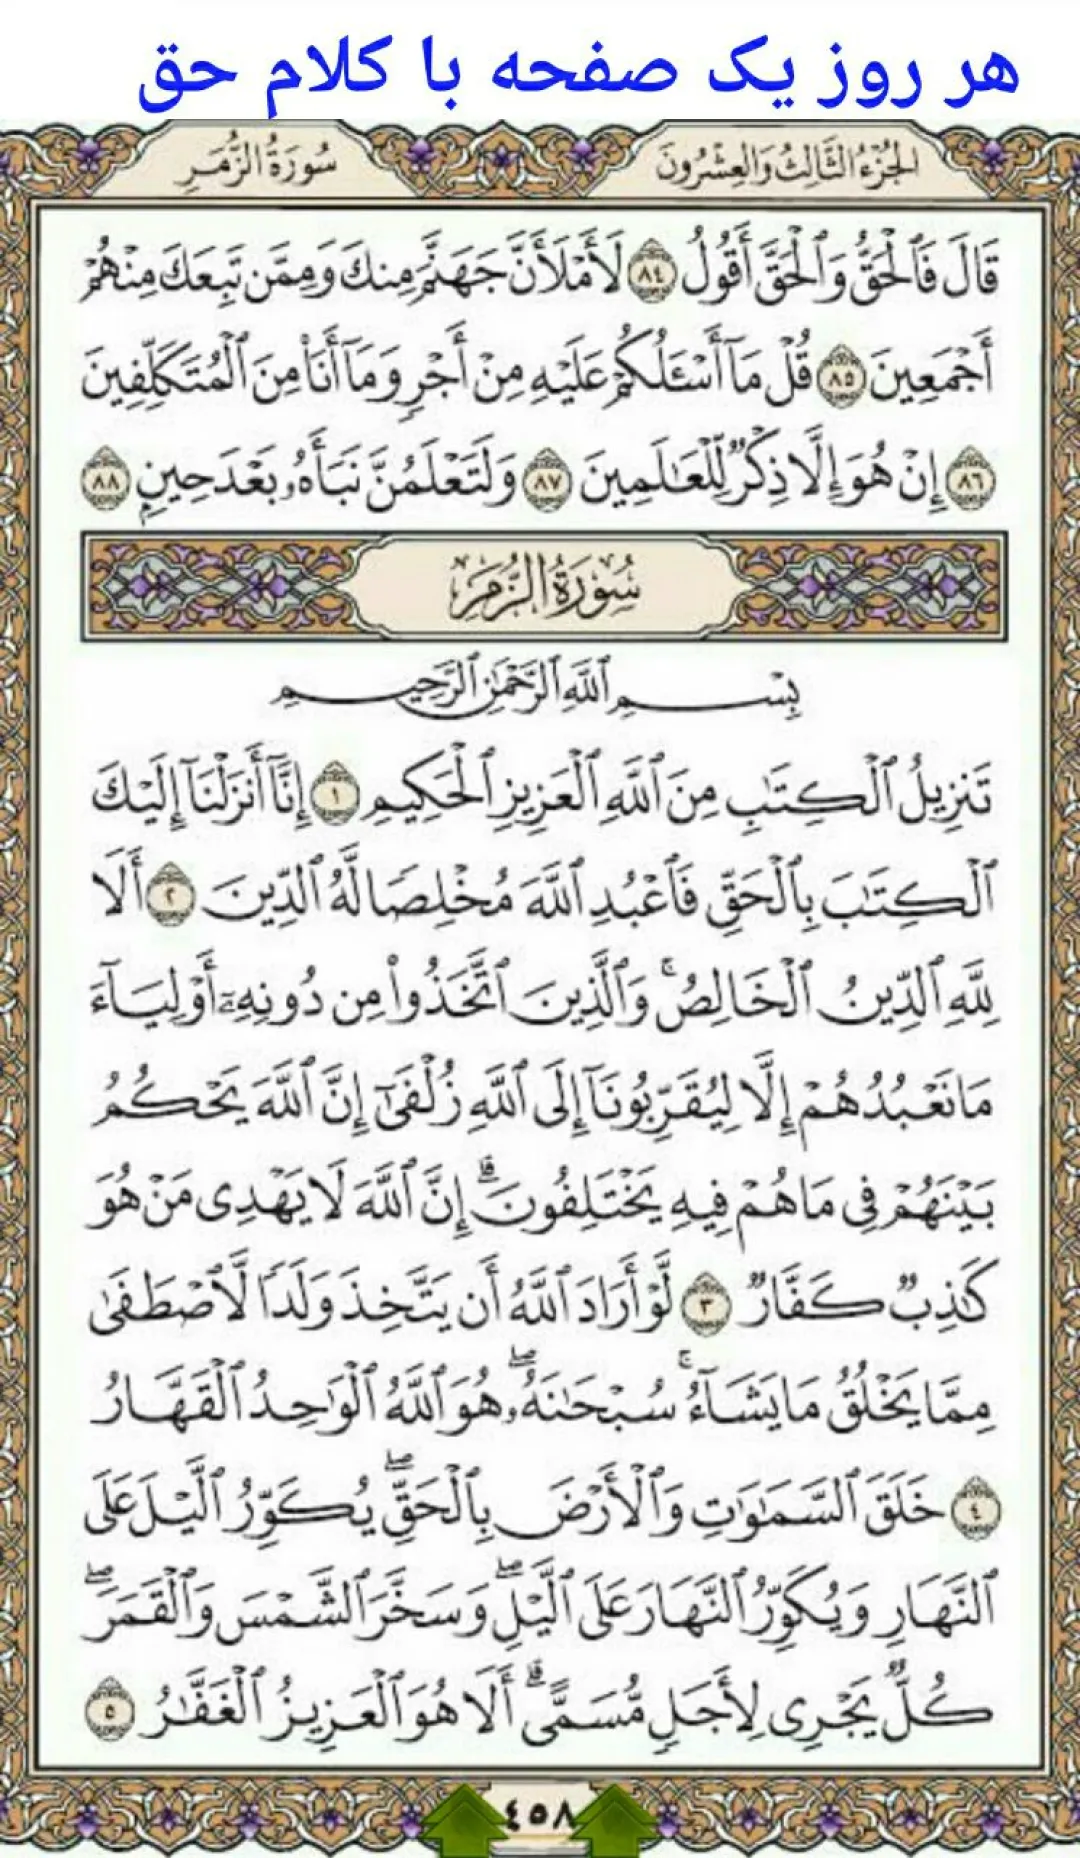 هر روز یک صفحه با کلام حق
الجُزْءُ الثَّالِثُ وَالْعِشْرُونَ
سُورَةُ الزُّمَرِ
قَالَ فَٱلْحَقُّ وَٱلْحَقَّ أَقُولُ ٨٤ لَأَمْلَأَنَّ جَهَنَّمَ مِنكَ وَمِمَّن تَبِعَكَ مِنْهُمْ
أَجْمَعِينَ ٨٥ قُلْ مَآ أَسْـَٔلُكُمْ عَلَيْهِ مِنْ أَجْرٍ وَمَآ أَنَا۠ مِنَ ٱلْمُتَكَلِّفِينَ
٨٦ إِنْ هُوَ إِلَّا ذِكْرٌ لِّلْعَٰلَمِينَ ٨٧ وَلَتَعْلَمُنَّ نَبَأَهُۥ بَعْدَ حِينٍۭ ٨٨
سُورَةُ الزُّمَرِ
بِسْمِ ٱللَّهِ ٱلرَّحْمَٰنِ ٱلرَّحِيمِ
تَنزِيلُ ٱلْكِتَٰبِ مِنَ ٱللَّهِ ٱلْعَزِيزِ ٱلْحَكِيمِ ١ إِنَّآ أَنزَلْنَآ إِلَيْكَ
ٱلْكِتَٰبَ بِٱلْحَقِّ فَٱعْبُدِ ٱللَّهَ مُخْلِصًا لَّهُ ٱلدِّينَ ٢ أَلَا
لِلَّهِ ٱلدِّينُ ٱلْخَالِصُ ۚ وَٱلَّذِينَ ٱتَّخَذُوا۟ مِن دُونِهِۦٓ أَوْلِيَآءَ
مَا نَعْبُدُهُمْ إِلَّا لِيُقَرِّبُونَآ إِلَى ٱللَّهِ زُلْفَىٰٓ إِنَّ ٱللَّهَ يَحْكُمُ
بَيْنَهُمْ فِى مَا هُمْ فِيهِ يَخْتَلِفُونَ ۗ إِنَّ ٱللَّهَ لَا يَهْدِى مَنْ هُوَ
كَٰذِبٌ كَفَّارٌ ٣ لَّوْ أَرَادَ ٱللَّهُ أَن يَتَّخِذَ وَلَدًا لَّٱصْطَفَىٰ
مِمَّا يَخْلُقُ مَا يَشَآءُ ۚ سُبْحَٰنَهُۥ ۖ هُوَ ٱللَّهُ ٱلْوَٰحِدُ ٱلْقَهَّارُ
٤ خَلَقَ ٱلسَّمَٰوَٰتِ وَٱلْأَرْضَ بِٱلْحَقِّ ۖ يُكَوِّرُ ٱلَّيْلَ عَلَى
ٱلنَّهَارِ وَيُكَوِّرُ ٱلنَّهَارَ عَلَى ٱلَّيْلِ ۖ وَسَخَّرَ ٱلشَّمْسَ وَٱلْقَمَرَ ۖ
كُلٌّ يَجْرِى لِأَجَلٍ مُّسَمًّى ۗ أَلَا هُوَ ٱلْعَزِيزُ ٱلْغَفَّٰرُ ٥
٤٥٨